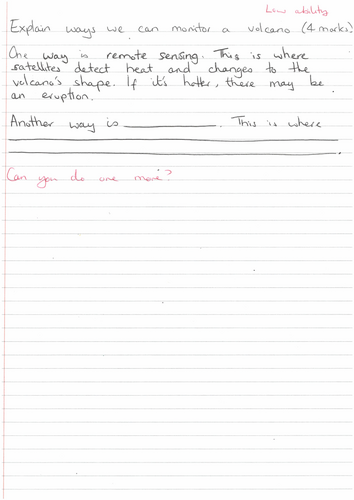 Low ability
Explain ways we can monitor a volcano (4 marks)
One way is remote sensing. This is where
satellites detect heat and changes to the
volcano's shape. If it's hotter, there may be
an eruption.
Another way is ____________. This is where
________________________________________
________________________________________.
Can you do one more?